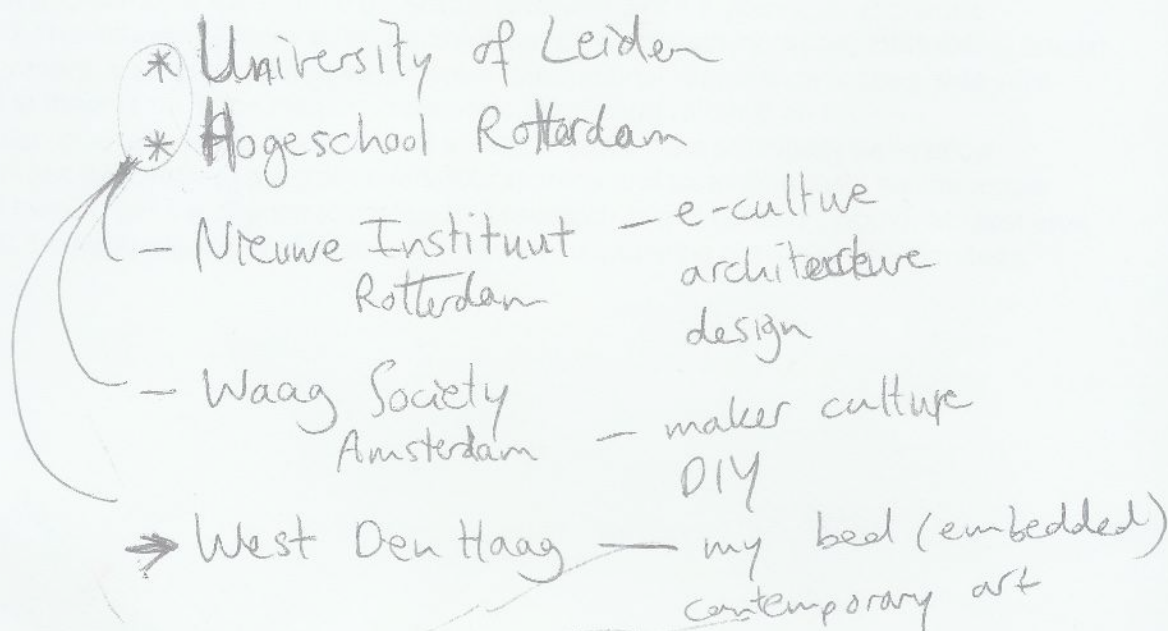 * University of Leiden
* Hogeschool Rotterdam
- Nieuwe Instituut - e-culture
Rotterdam architecture
design
- Waag Society
Amsterdam - maker culture
DIY
→ West Den Haag — my bed (embedded)
contemporary art